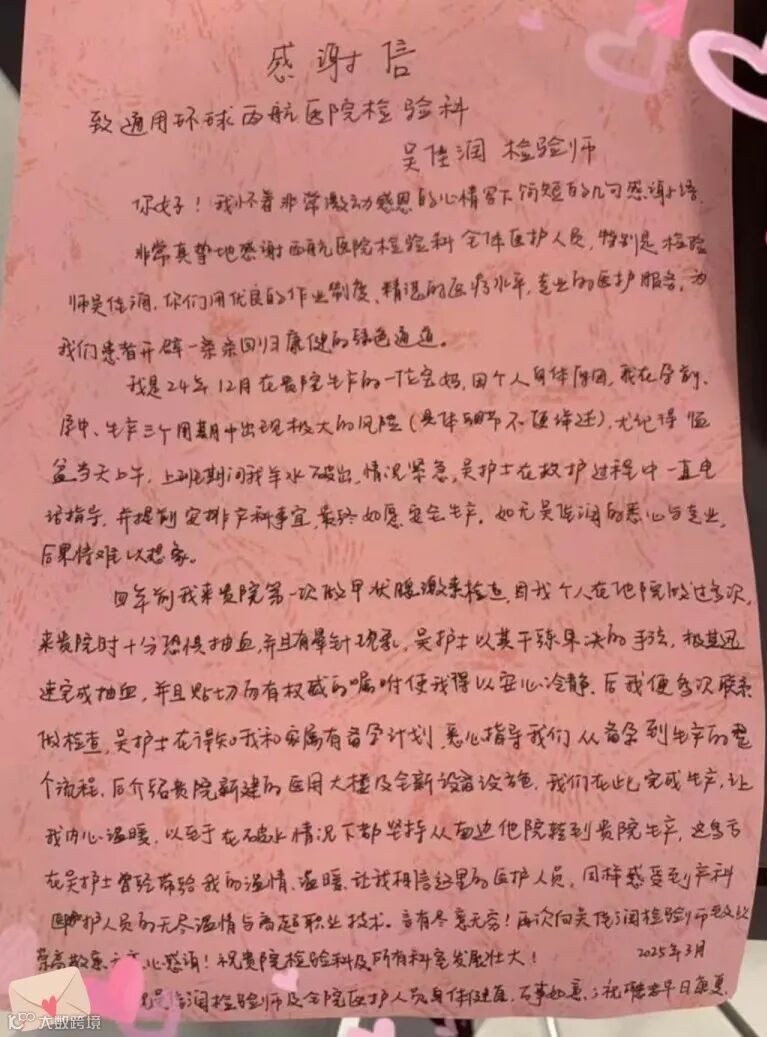 感谢信
致通用环球西航医院检验科
吴佳润 检验师
你好！我怀着非常激动感恩的心情写下简短的几句感谢语.
非常真挚地感谢西航医院检验科全体医护人员,特别是检验
师吴佳润,你们用优良的作业制度、精湛的医疗水平,专业的医护服务,为
我们患者开辟一条亲回归康健的绿色通道。
我是24年12月在贵院生产的一位宝妈,因个人身体原因,我在孕前、
孕中、生产三个周期中出现极大的风险(具体细节不便绎述),尤记得临
盆当天上午,上班期间我羊水破出,情况紧急,吴护士在救护过程中一直电
话指导,并提前安排产科事宜,最终如愿安全生产。如无吴佳润的悉心与专业,
后果情难以想象。
四年前我来贵院第一次做甲状腺激素检查,因我个人在他院做过多次,
来贵院时十分恐惧抽血,并且有晕针现象,吴护士以其干练果决的手法,极其迅
速完成抽血,并且贴切而有权威的嘱咐使我得以安心冷静.后我便多次联系
做检查,吴护士在得知我和家属有备孕计划,悉心指导我们从备孕到生产的整
个流程,后介绍贵院新建的医用大楼及全新设备设施,我们在此完成生产,让
我内心温暖,以至于在破水情况下都坚持从南边他院转到贵院生产,这多亏
在吴护士曾经带给我的温情、温暖,让我相信这里的医护人员,同样感受到产科
医护人员的无尽温情与高超职业技术。言有尽意无穷!再次向吴佳润检验师致以
崇高敬意与衷心感谢!祝贵院检验科及所有科室发展壮大!
2025年3月
吴佳润检验师及全院医护人员身体健康,万事如意,祝患者早日康复
大数跨境